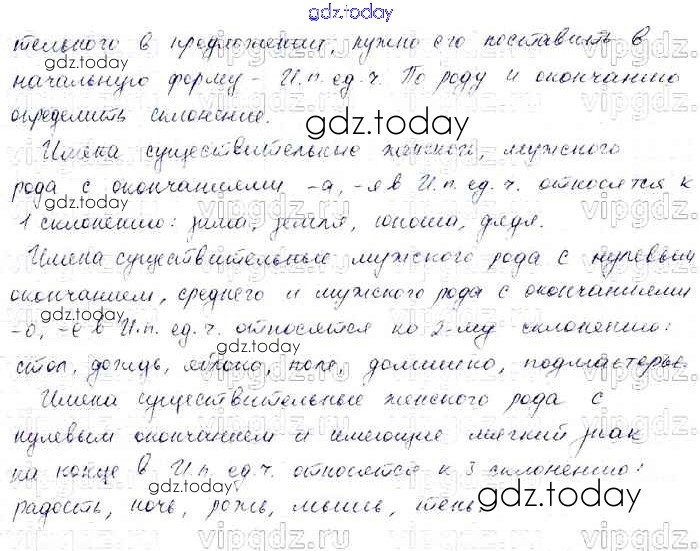 gdz.today
тельного в предложении, нужно его поставить в
начальную форму - И.п. ед.ч. По роду и окончанию
gdz.today
определить склонение.
gdz.today
Имена существительные женского, мужского
рода с окончаниями -а, -я в И.п. ед.ч. относятся к
1 склонению: зима, земля, юноша, дядя.
Имена существительные мужского рода с нулевым
окончанием, среднего и мужского рода с окончаниями
-о, -е в И.п. ед.ч. относятся ко 2-му склонению:
gdz.today
стол, дождь, яблоко, поле, домишко, подмастерье.
Имена существительные женского рода с
нулевым окончанием и имеющие мягкий знак
на конце в И.п. ед.ч. относятся к 3 склонению:
gdz.today
радость, ночь, рожь, мышь, тень.
gdz.today
vipgdz.ru